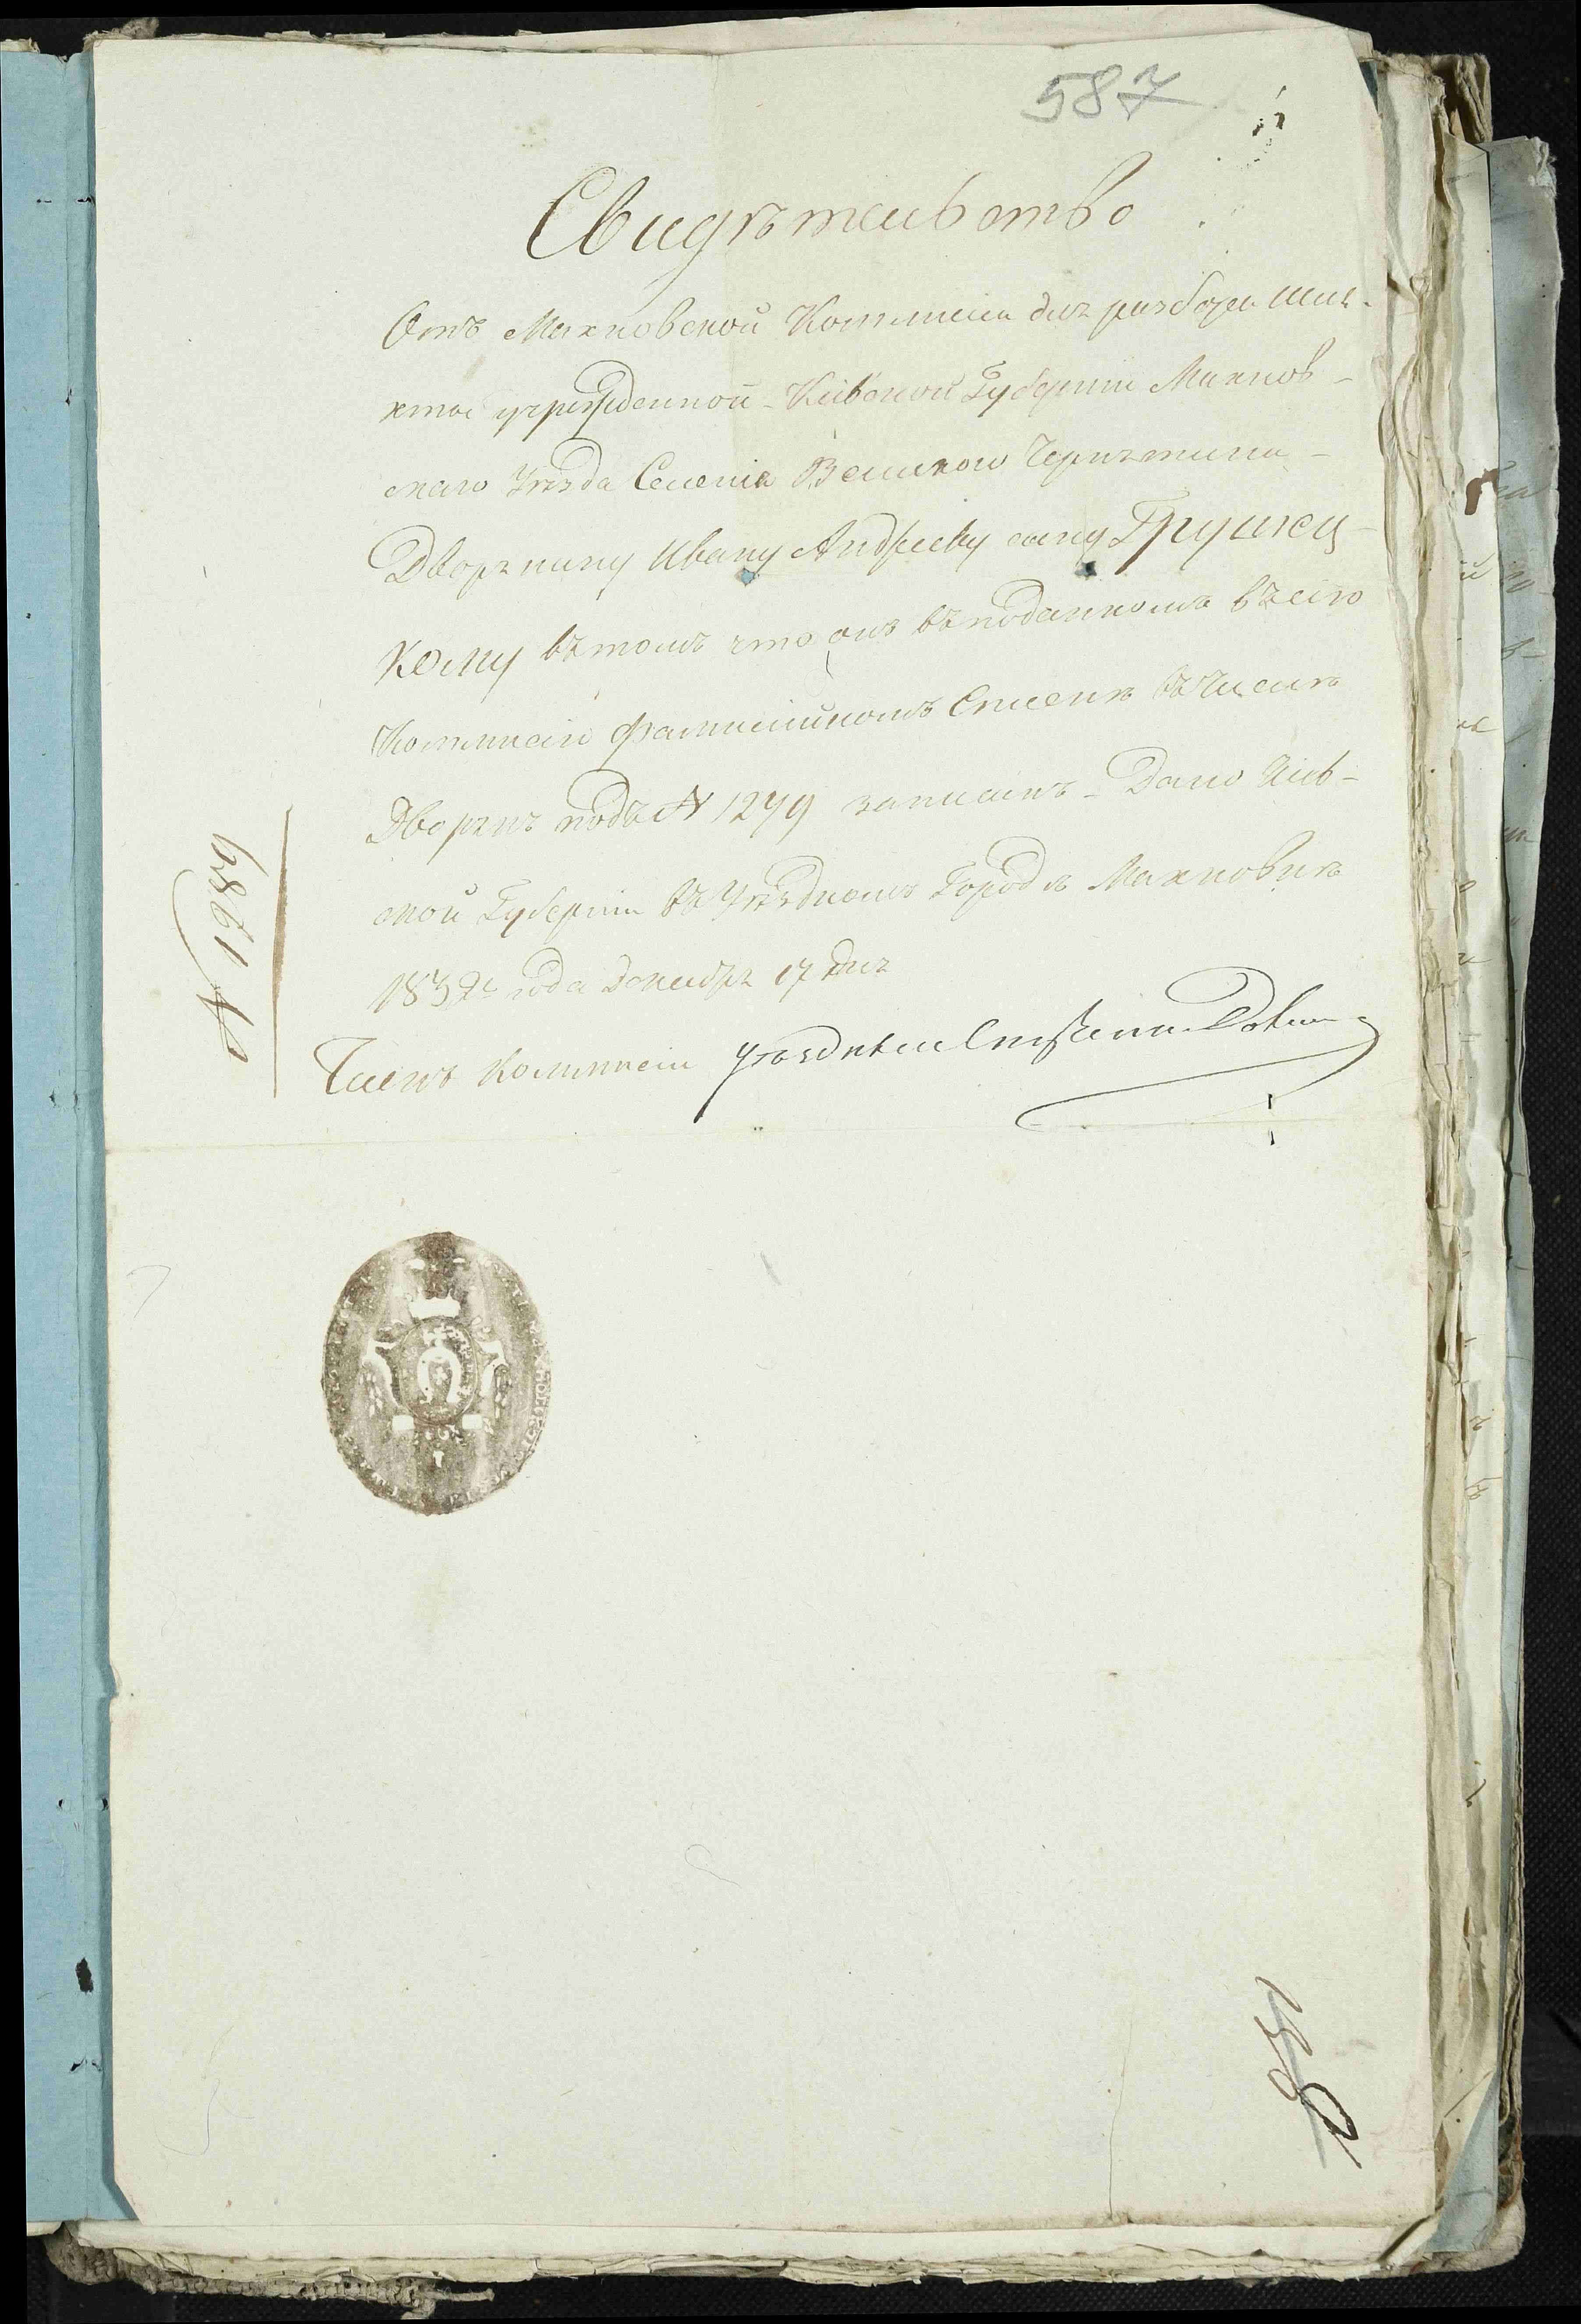 587
Свидѣтельство
Отъ Махновской Коммисіи для разбора шля-
хты учрежденной - Кіевской Губерніи Махнов-
скаго Уѣзда Селенія Великого Чернятина -
Дворянину Ивану Андрееву сыну Грушец-
кому въ томъ что онъ въ поданномъ въ сію
Коммисію Фамилійномъ Спискѣ въ числѣ
Дворянъ подъ N 1279 записанъ - Дано Кіев-
ской Губерніи въ Уѣздномъ Городѣ Махновкѣ
1832го года Декабря 17 дня
Членъ Коммисіи Уѣздный
N 1289